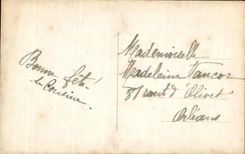 Bonne fête!
ta Cousine
Mademoiselle
Madeleine Vancor
87 rout d'Olivet
Orléans